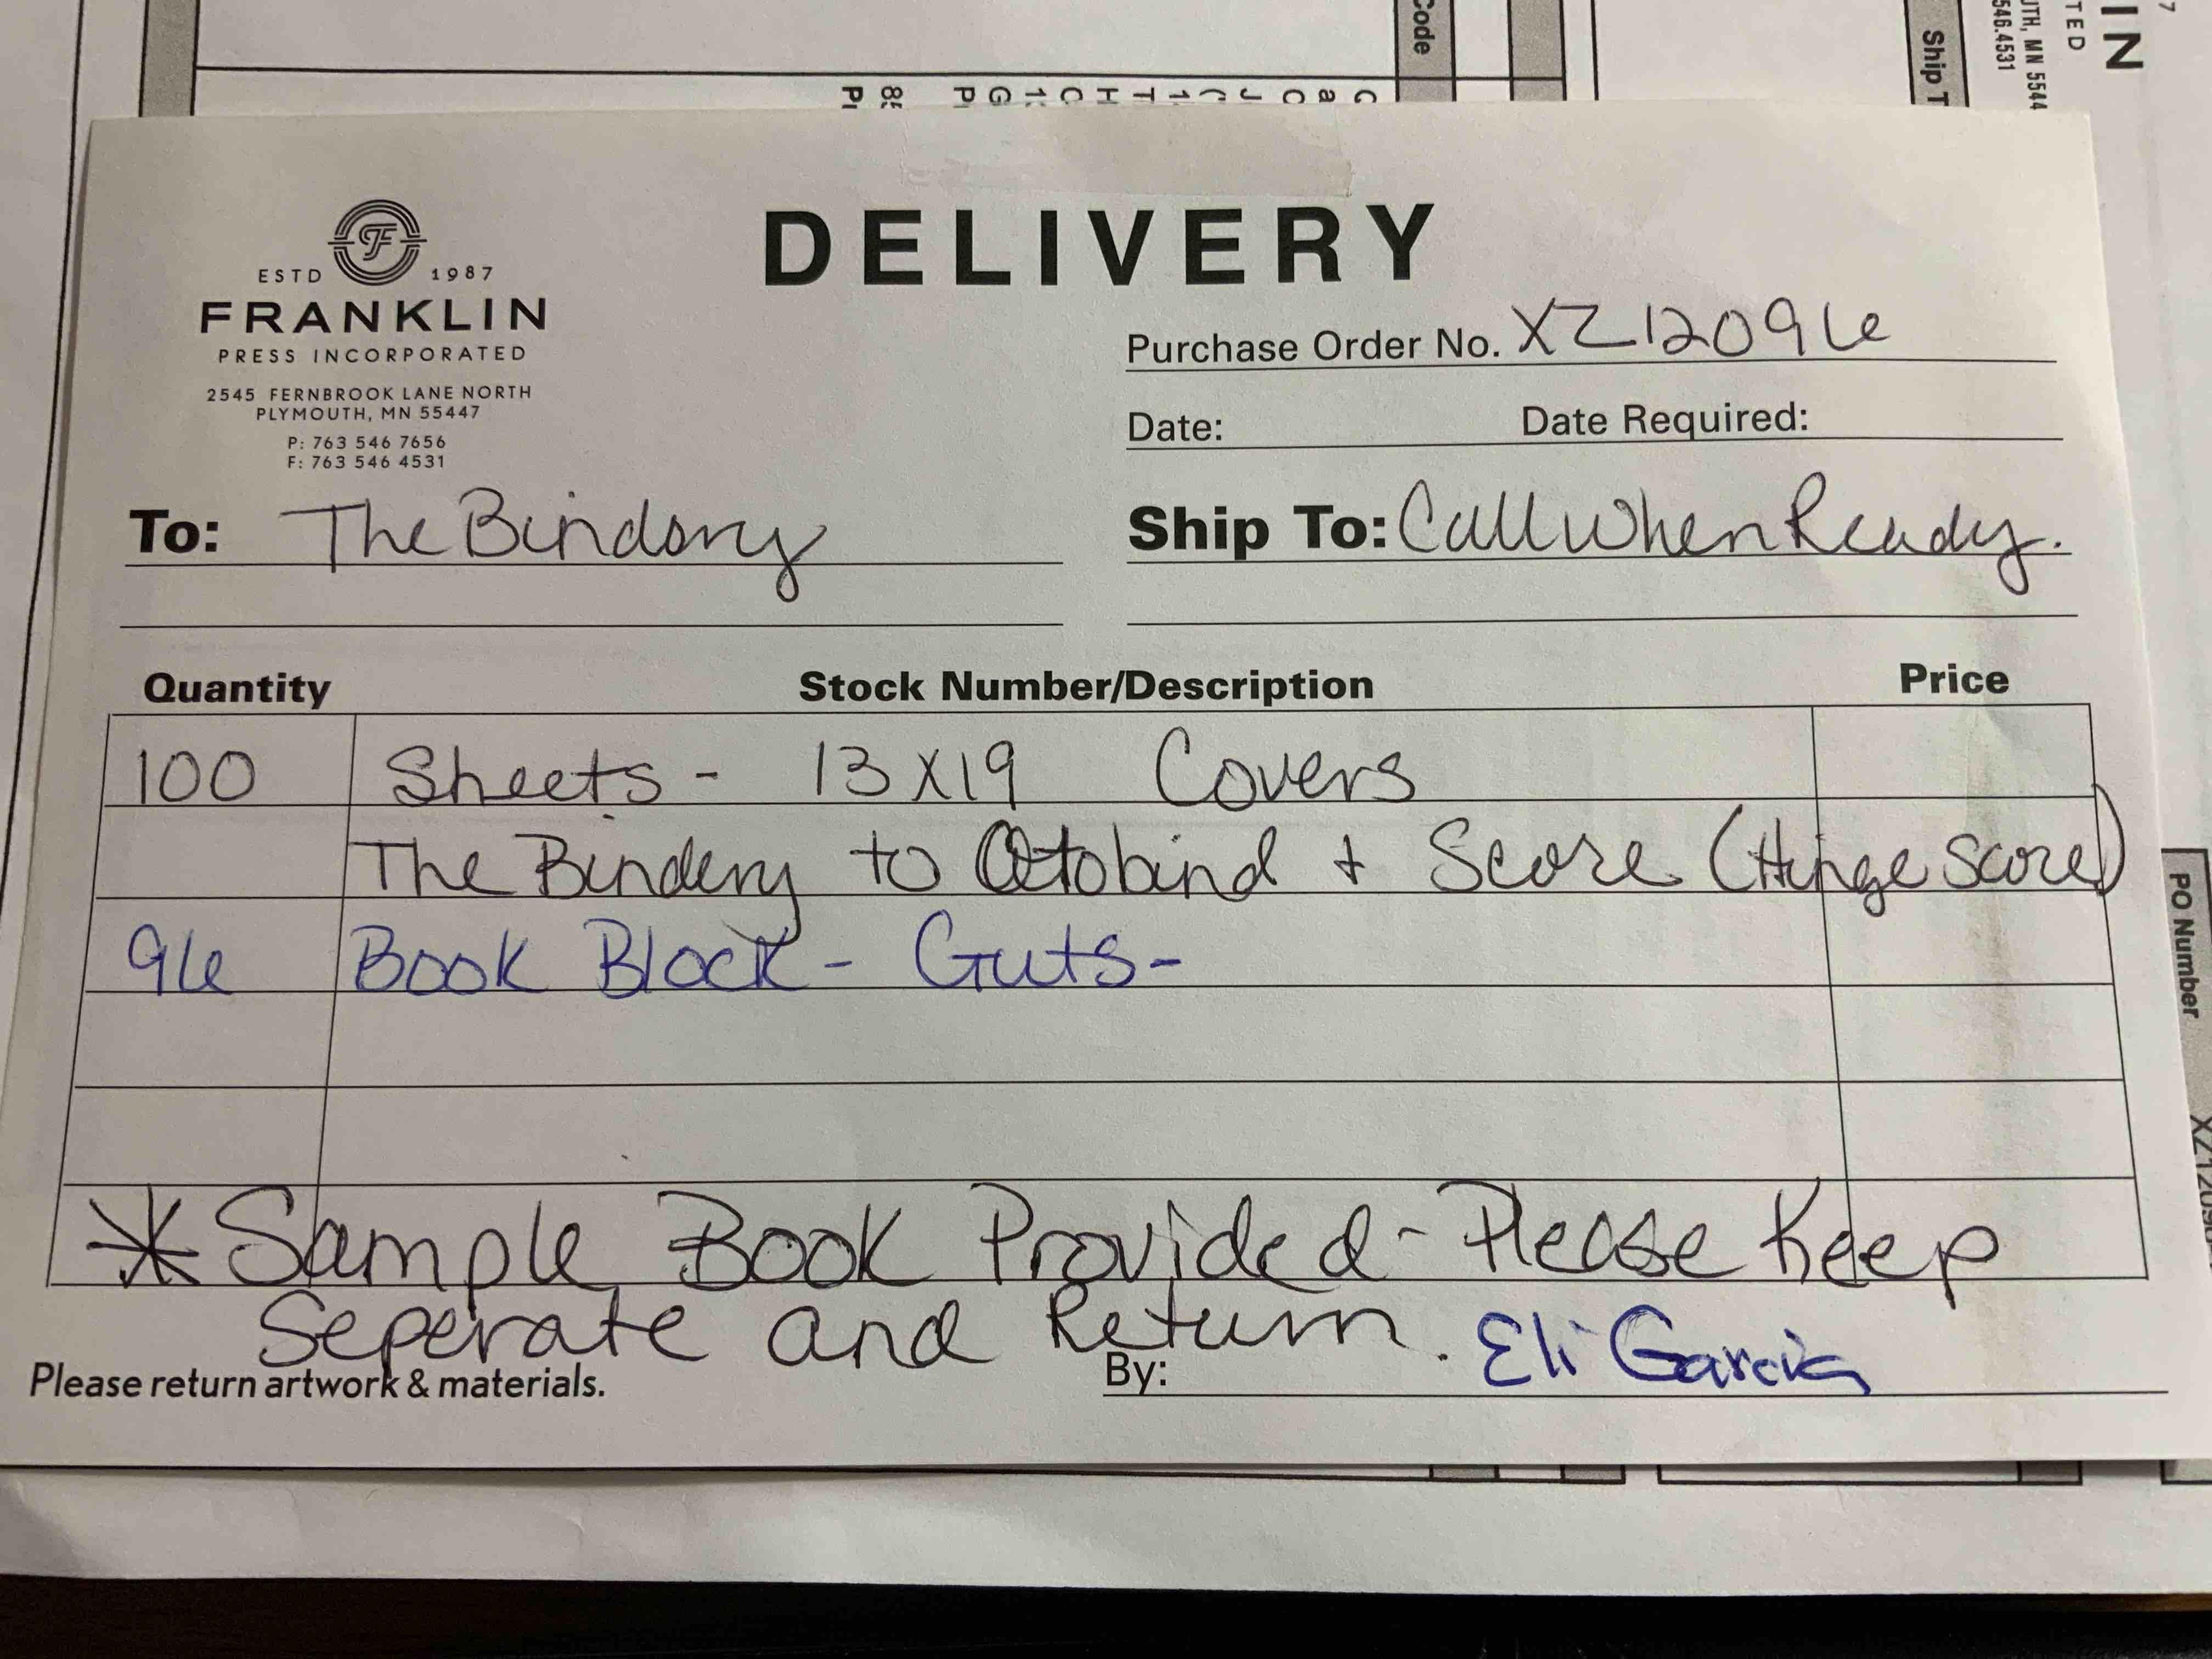 Code
Ship T
UTH, MN 5544
546.4531
TED
IN
7
ESTD 1987
FRANKLIN
PRESS INCORPORATED
2545 FERNBROOK LANE NORTH
PLYMOUTH, MN 55447
P: 763 546 7656
F: 763 546 4531
DELIVERY
Purchase Order No. XZ12096
Date: Date Required:
To: The Bindery
Ship To: Call When Ready.
Quantity Stock Number/Description Price
100 Sheets - 13 X 19 Covers
The Bindery to Otobind + Score (Hinge Score)
96 Book Block - Guts -
* Sample Book Provided - Please Keep
Seperate and Return.
Please return artwork & materials.
By: Eli Garcia
PO Number